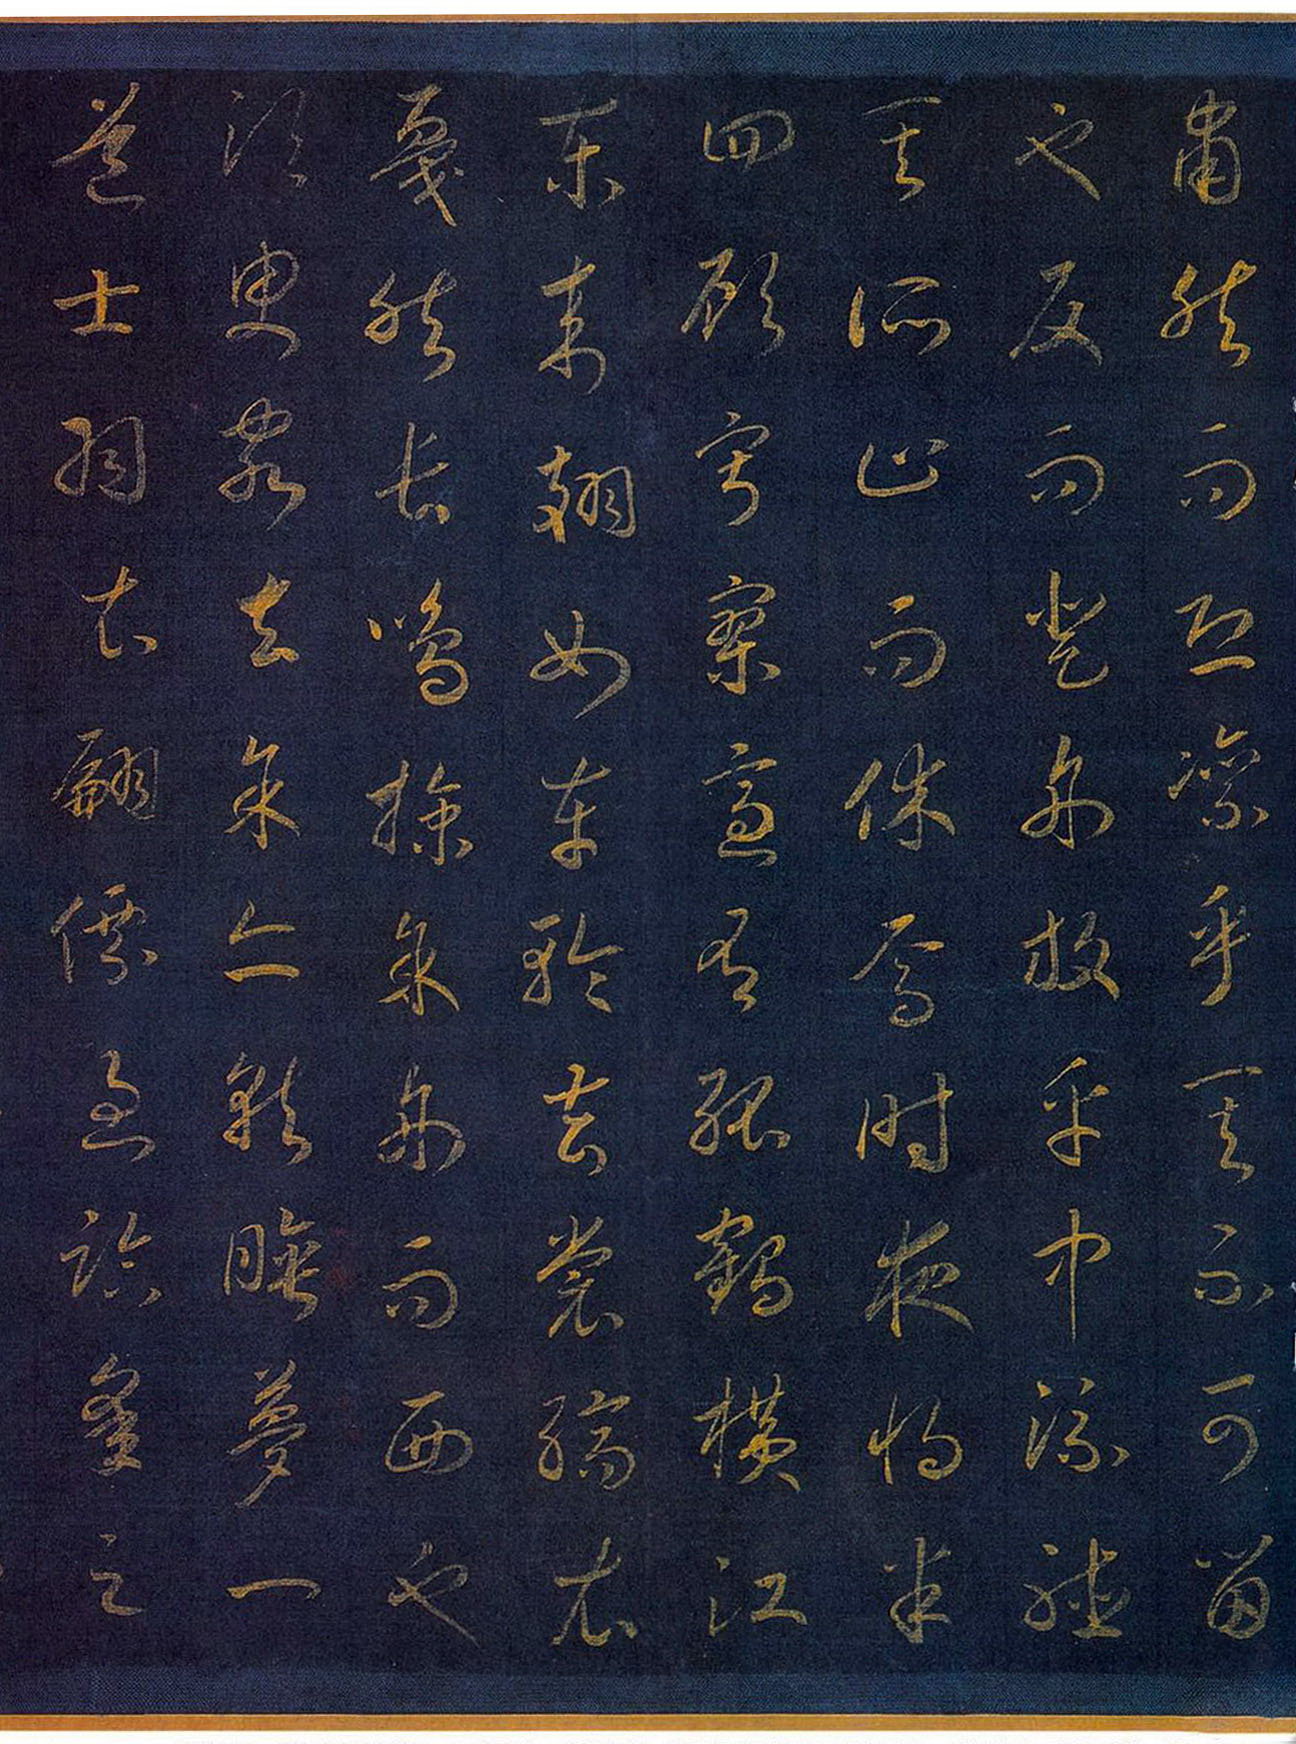 肅然而恐凜乎其不可留
也反而登舟放乎中流聽
其所止而休焉時夜將半
四顧寂寥適有孤鶴橫江
東來翅如車輪玄裳縞衣
戛然長鳴掠予舟而西也
須臾客去予亦就睡夢一
道士羽衣翩僊過臨皋之